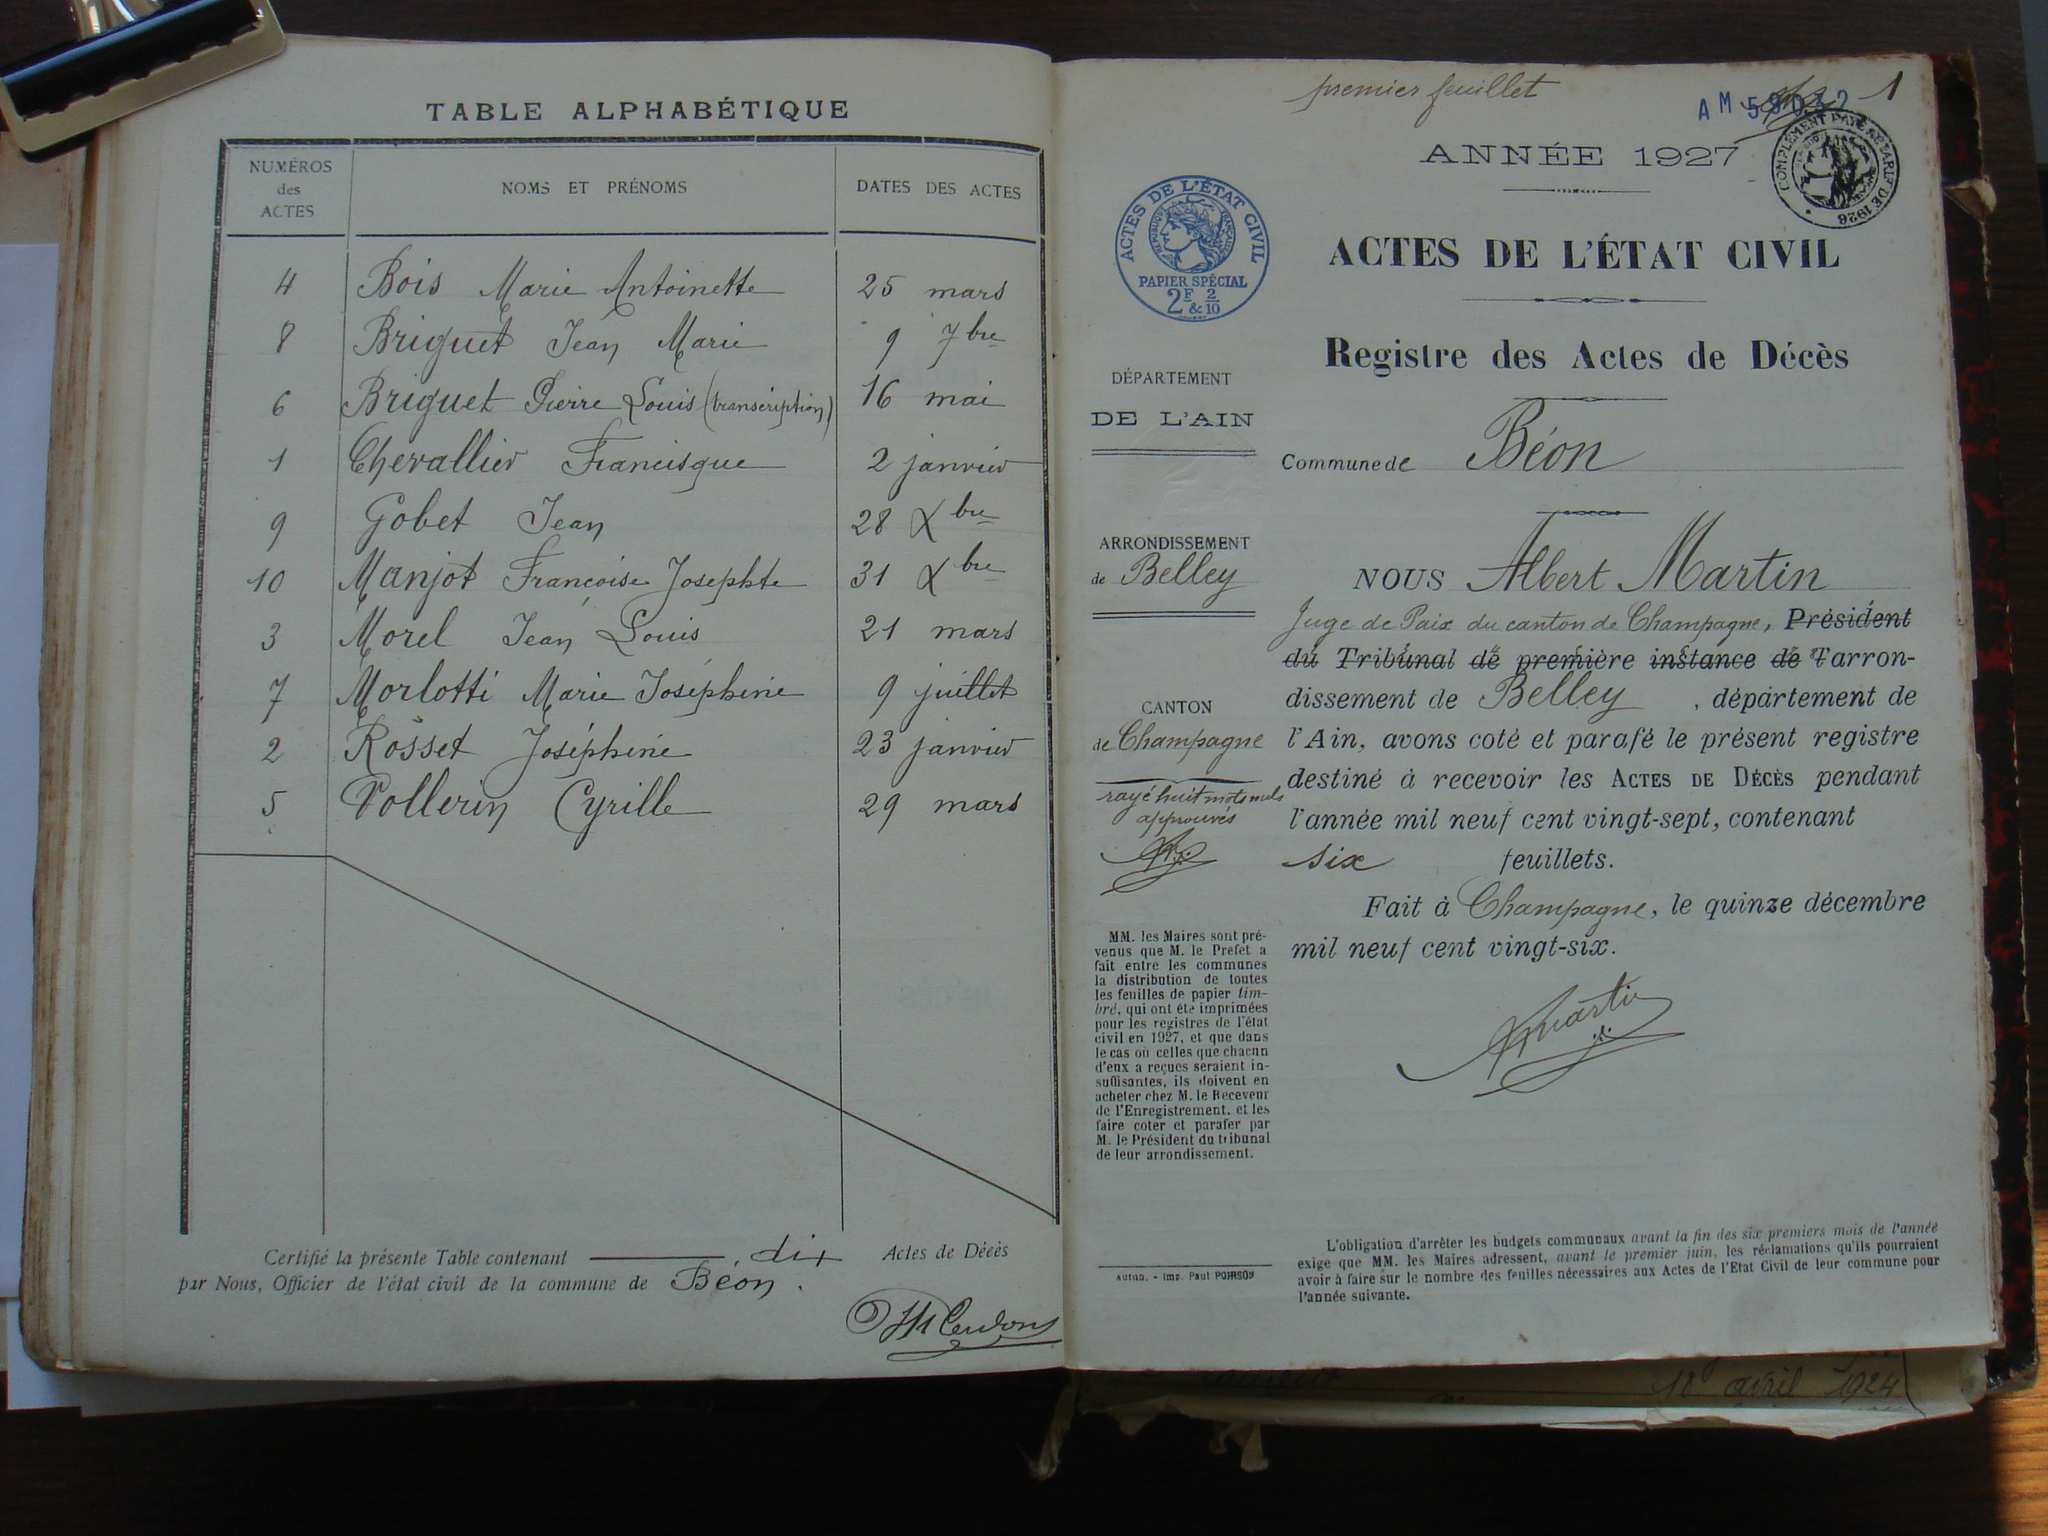 TABLE ALPHABÉTIQUE
NUMÉROS des ACTES NOMS ET PRÉNOMS DATES DES ACTES
4 Bois Marie Antoinette 25 mars
8 Briguet Jean Marie 9 7bre
6 Briguet Pierre Louis (transcription) 16 mai
1 Chevallier Francisque 2 janvier
9 Gobet Jean 28 Xbre
10 Manjot Françoise Josephte 31 Xbre
3 Morel Jean Louis 21 mars
7 Morlotti Marie Joséphine 9 juillet
2 Rosset Joséphine 23 janvier
5 Vollerin Cyrille 29 mars
Certifié la présente Table contenant dix Actes de Décès
par Nous, Officier de l'état civil de la commune de Béon.
premier feuillet
1
ANNÉE 1927
COMPLÉMENT PAYÉ AU TARIF DE 1926
ACTES DE L'ÉTAT CIVIL
RÉPUBLIQUE FRANÇAISE
PAPIER SPÉCIAL
2F & 2/10
ACTES DE L'ÉTAT CIVIL
Registre des Actes de Décès
DÉPARTEMENT
DE L'AIN
Commune de Béon
ARRONDISSEMENT
de Belley
NOUS Albert Martin
Juge de Paix du canton de Champagne, Président
du Tribunal de première instance de l'arron-
dissement de Belley, département de
l'Ain, avons coté et parafé le présent registre
destiné à recevoir les ACTES DE DÉCÈS pendant
l'année mil neuf cent vingt-sept, contenant
six feuillets.
Fait à Champagne, le quinze décembre
mil neuf cent vingt-six.
CANTON
de Champagne
rayé huit mots nuls
approuvés
MM. les Maires sont pré-
venus que M. le Préfet a
fait entre les communes
la distribution de toutes
les feuilles de papier tim-
bré, qui ont été imprimées
pour les registres de l'état
civil en 1927, et que dans
le cas où celles que chacun
d'eux a reçues seraient in-
suffisantes, ils doivent en
acheter chez M. le Receveur
de l'Enregistrement, et les
faire coter et parafer par
M. le Président du tribunal
de leur arrondissement.
Autun. - Imp. Paul POIRSON
L'obligation d'arrêter les budgets communaux avant la fin des six premiers mois de l'année
exige que MM. les Maires adressent, avant le premier juin, les réclamations qu'ils pourraient
avoir à faire sur le nombre des feuilles nécessaires aux Actes de l'Etat Civil de leur commune pour
l'année suivante.
18 avril 1924